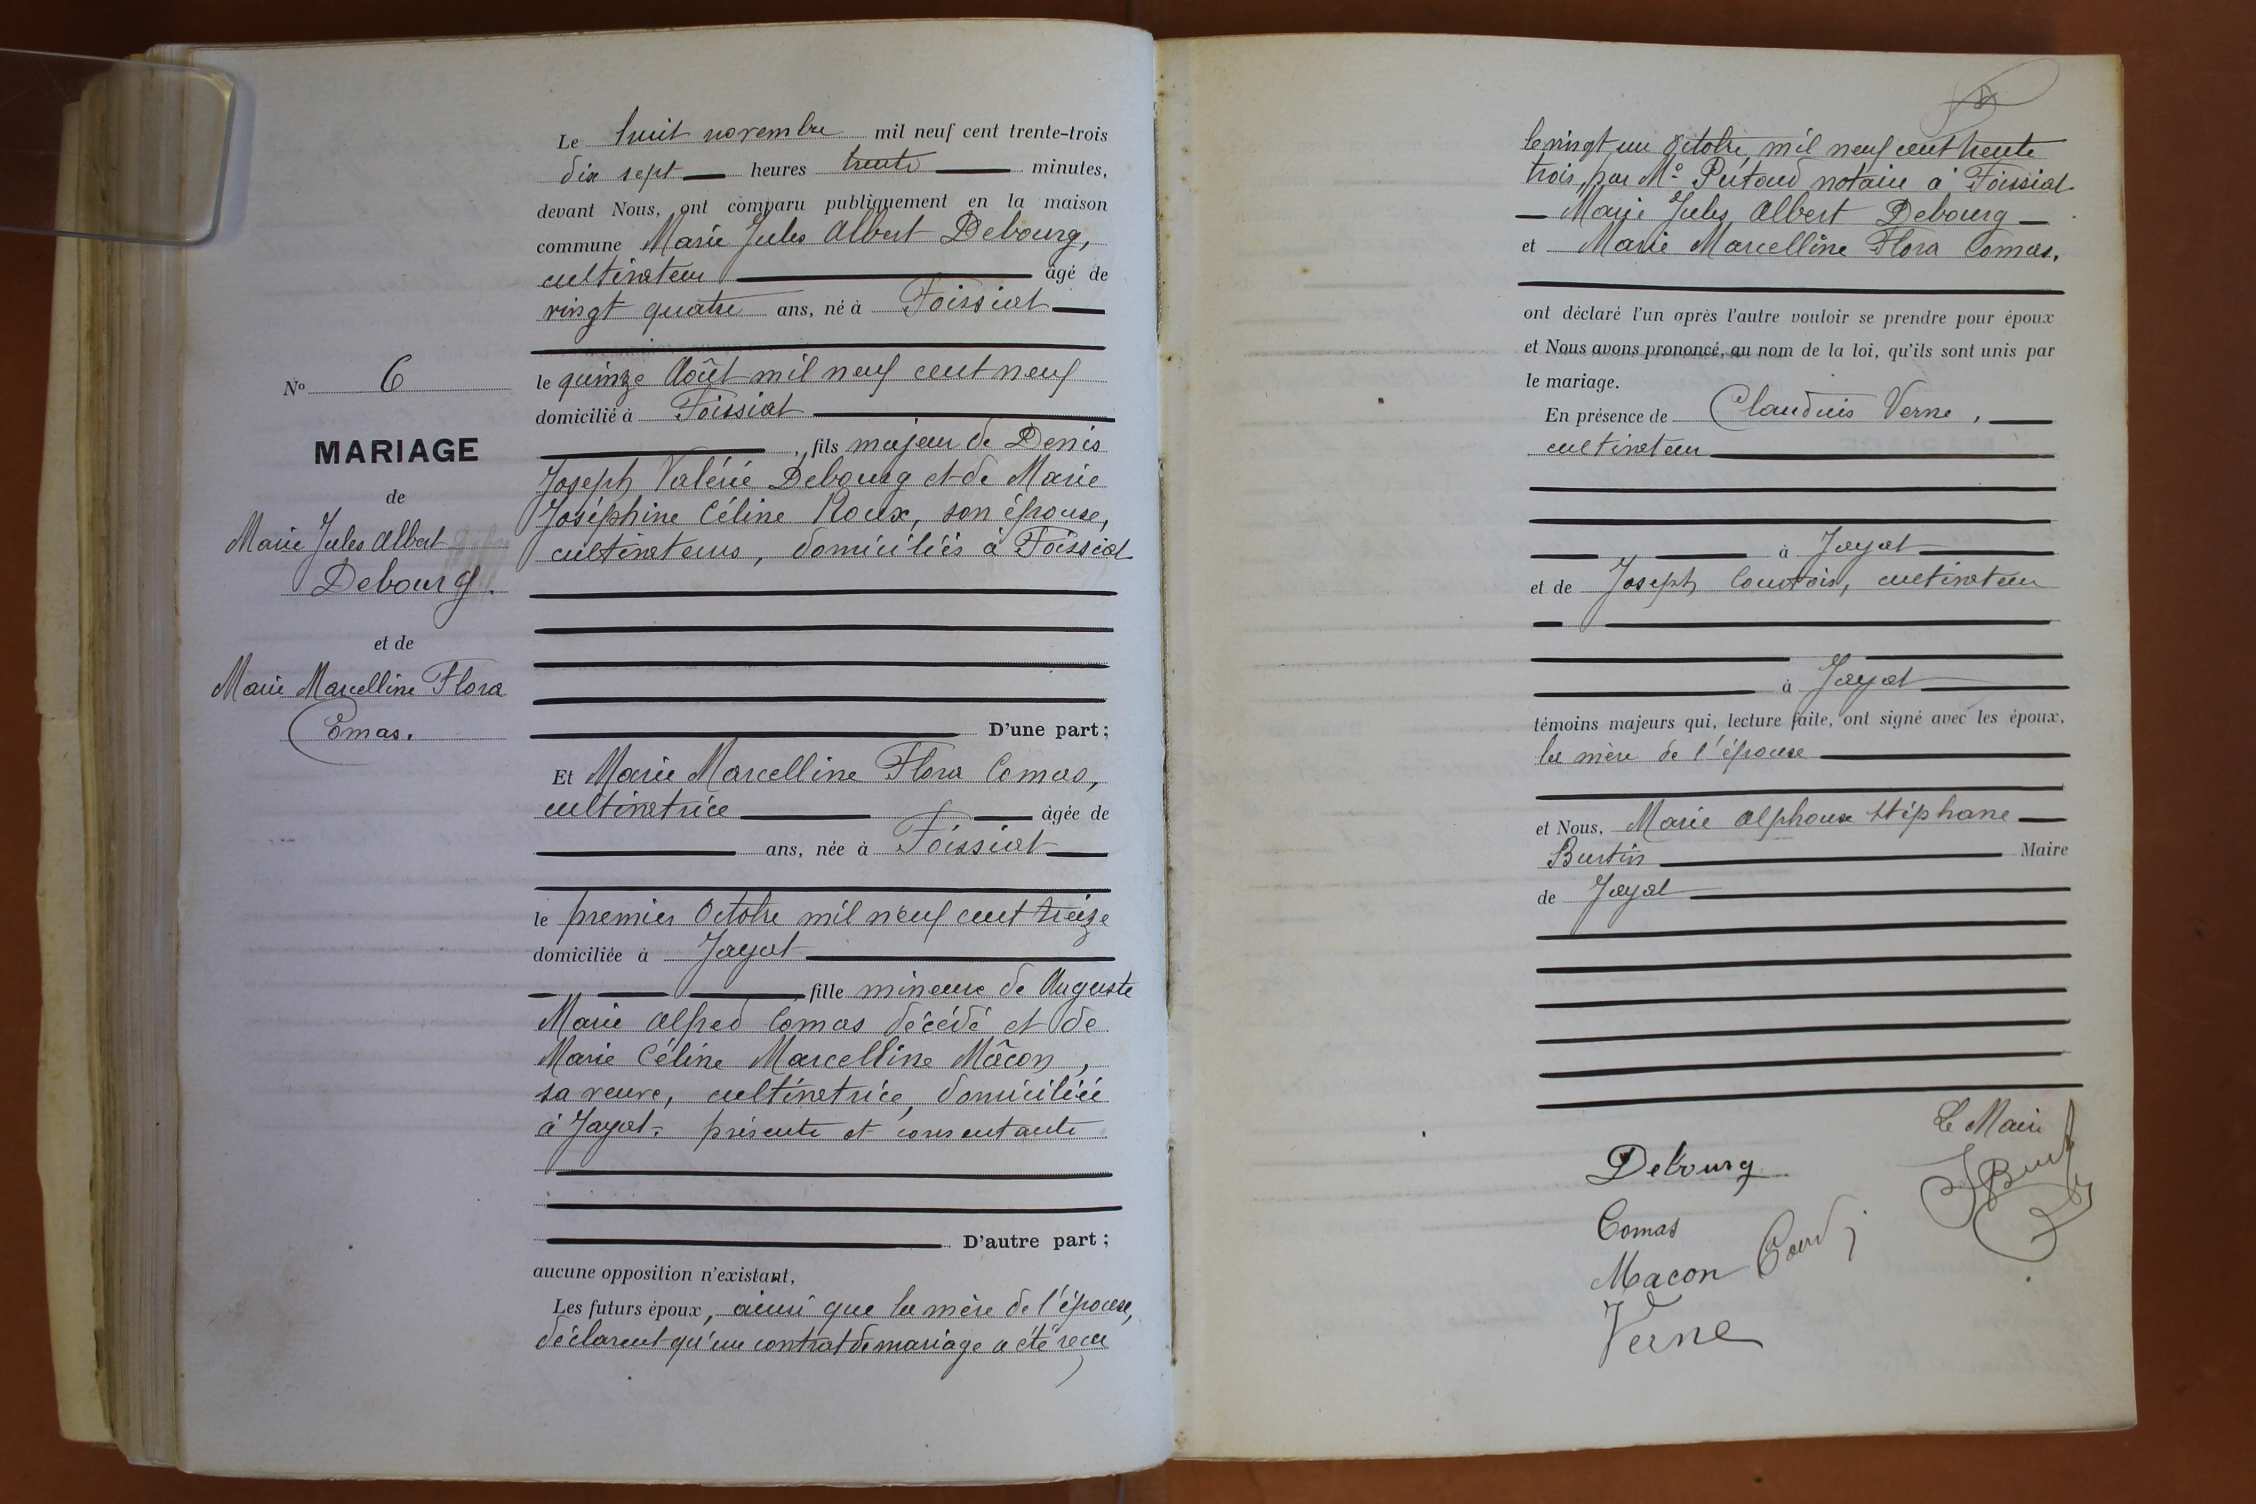 Le huit novembre mil neuf cent trente-trois
dix sept heures trente minutes,
devant Nous, ont comparu publiquement en la maison
commune Marie Jules Albert Debourg,
cultivateur âgé de
vingt quatre ans, né à Foissiat
le quinze Août mil neuf cent neuf
domicilié à Foissiat
, fils majeur de Denis
Joseph Valérie Debourg et de Marie
Joséphine Céline Roux, son épouse,
cultivateurs, domiciliés à Foissiat
D'une part;
Et Marie Marcelline Flora Comas,
cultivatrice âgée de
ans, née à Foissiat
le premier Octobre mil neuf cent treize
domiciliée à Jayat
fille mineure de Auguste
Marie Alfred Comas décédé et de
Marie Céline Marcelline Mâcon,
sa veuve, cultivatrice, domiciliée
à Jayat. présente et consentante
D'autre part;
aucune opposition n'existant,
Les futurs époux, ainsi que la mère de l'épouse,
déclarent qu'un contrat de mariage a été reçu
N° 6
MARIAGE
de
Marie Jules Albert
Debourg.
et de
Marie Marcelline Flora
Comas.
le vingt un Octobre mil neuf cent trente
trois, par Me notaire à Foissiat
Marie Jules Albert Debourg
et Marie Marcelline Flora Comas.
ont déclaré l'un après l'autre vouloir se prendre pour époux
et Nous avons prononcé, au nom de la loi, qu'ils sont unis par
le mariage.
En présence de Claudius Verne,
cultivateur
à Jayat
et de Joseph Courtois, cultivateur
à Jayat
témoins majeurs qui, lecture faite, ont signé avec les époux,
la mère de l'épouse
et Nous, Marie Alphonse Stéphane
Burtin Maire
de Jayat
Le Maire
Debourg
Comas
Macon
Verne